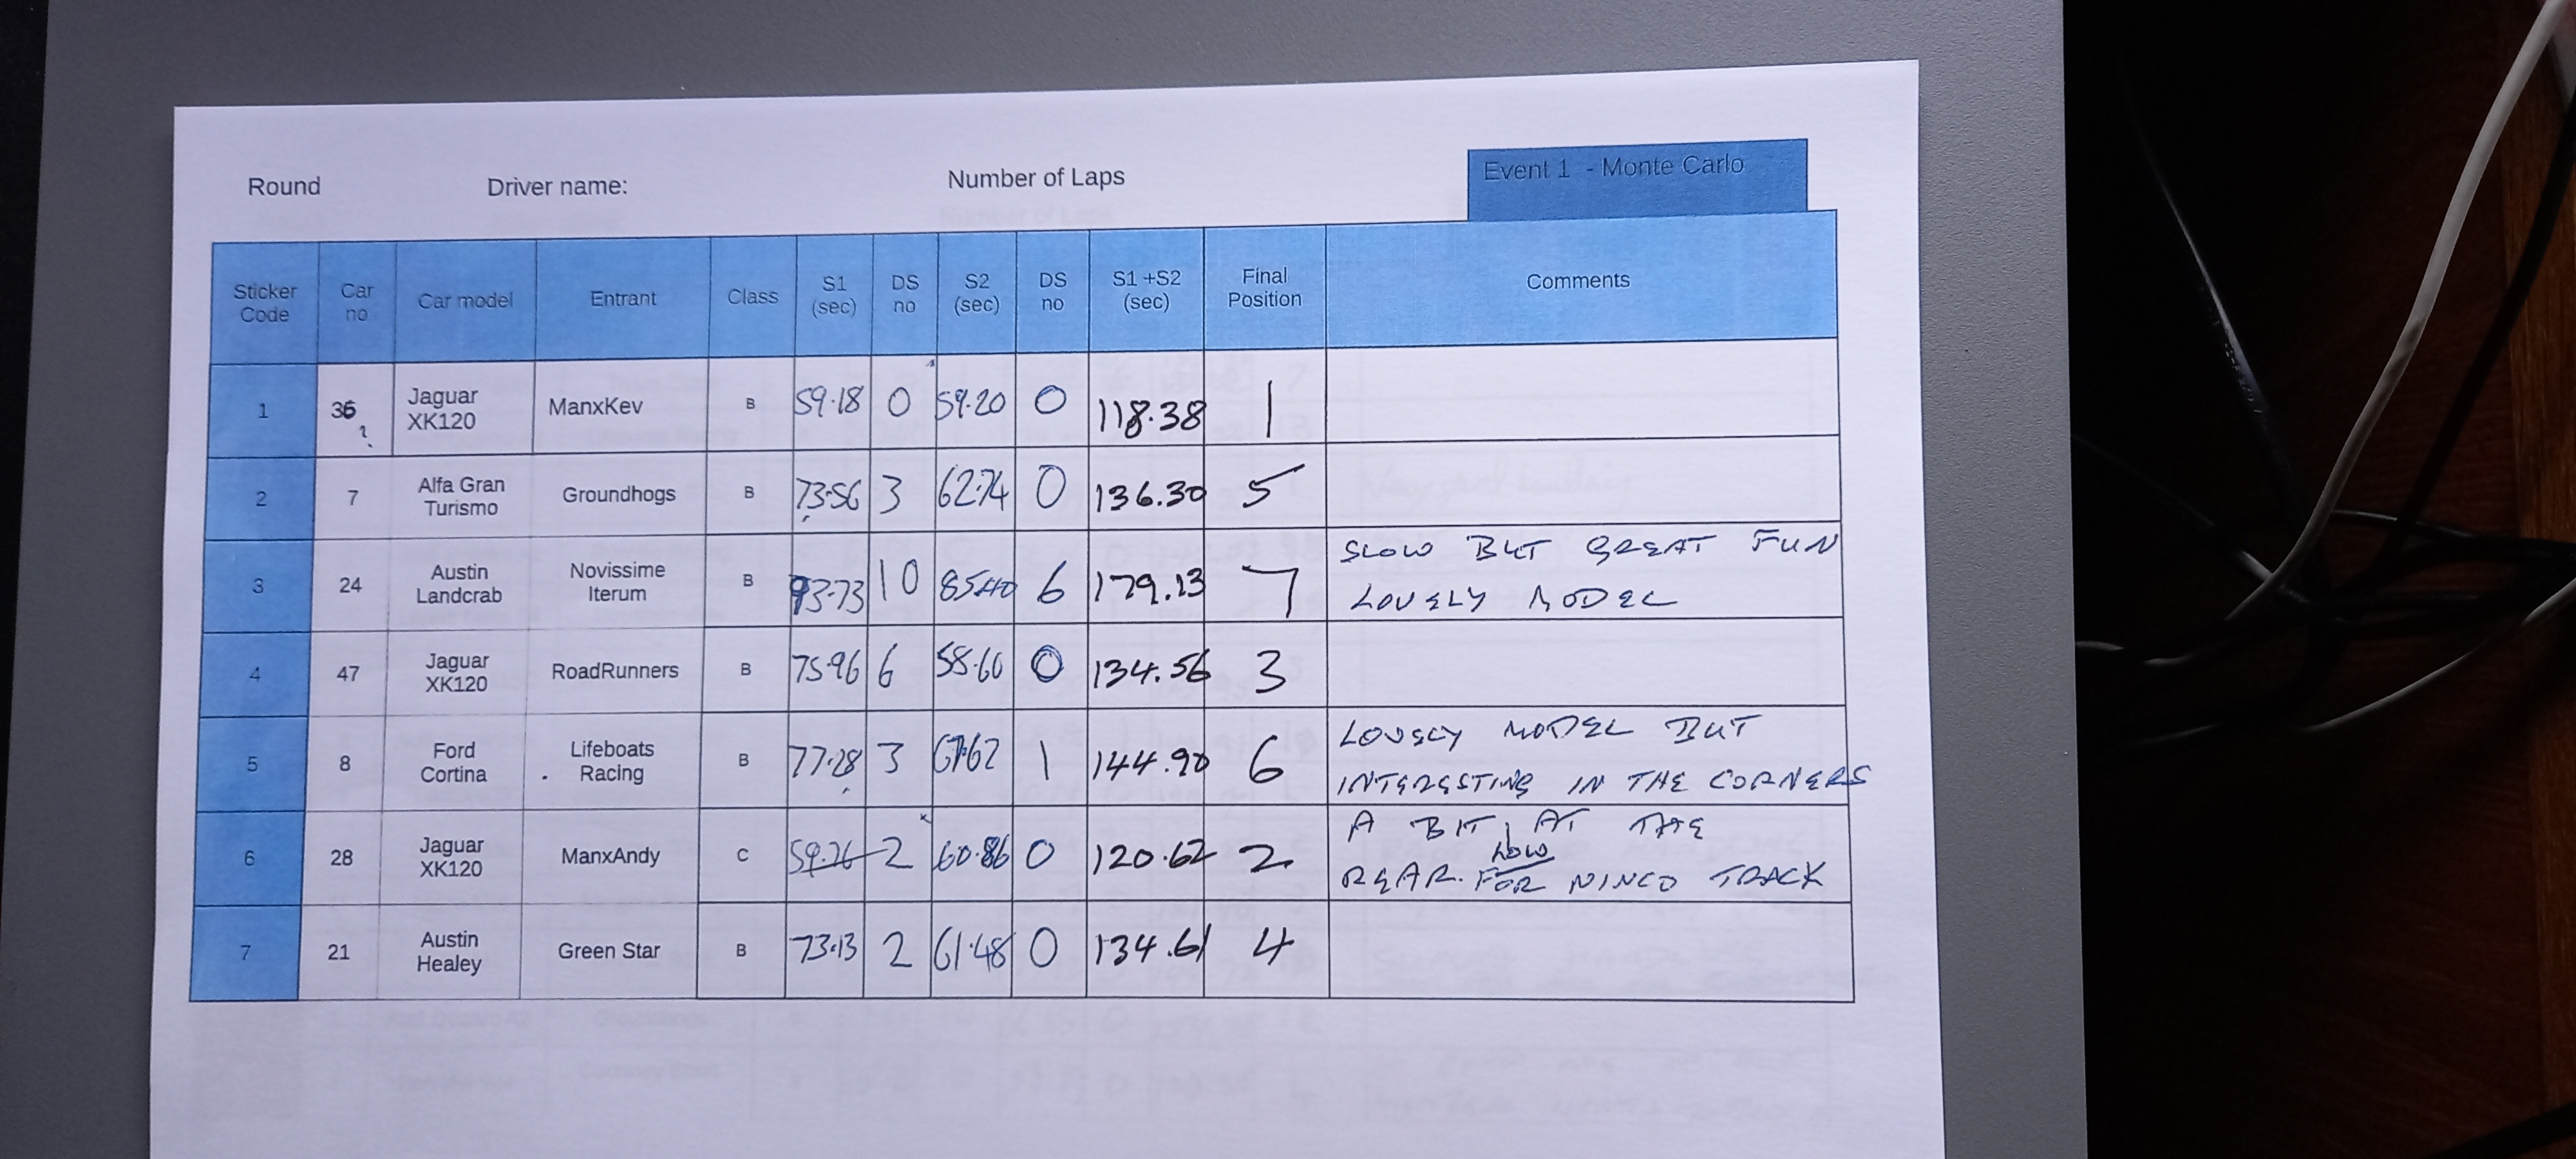 Round Driver name: Number of Laps Event 1 - Monte Carlo
Sticker Code Car no Car model Entrant Class S1 (sec) DS no S2 (sec) DS no S1 +S2 (sec) Final Position Comments
1 36 ? Jaguar XK120 ManxKev B 59.18 0 59.20 0 118.38 1
2 7 Alfa Gran Turismo Groundhogs B 73.56 3 62.74 0 136.30 5
3 24 Austin Landcrab Novissime Iterum B 93.73 10 85.40 6 179.13 7 SLOW BUT GREAT FUN
LOVELY MODEL
4 47 Jaguar XK120 RoadRunners B 75.96 6 58.60 0 134.56 3
5 8 Ford Cortina Lifeboats Racing B 77.28 3 67.62 1 144.90 6 LOVELY MODEL BUT
INTERESTING IN THE CORNERS
6 28 Jaguar XK120 ManxAndy C 59.76 2 60.86 0 120.62 2 A BIT LOW AT THE
REAR. FOR NINCO TRACK
7 21 Austin Healey Green Star B 73.13 2 61.48 0 134.61 4